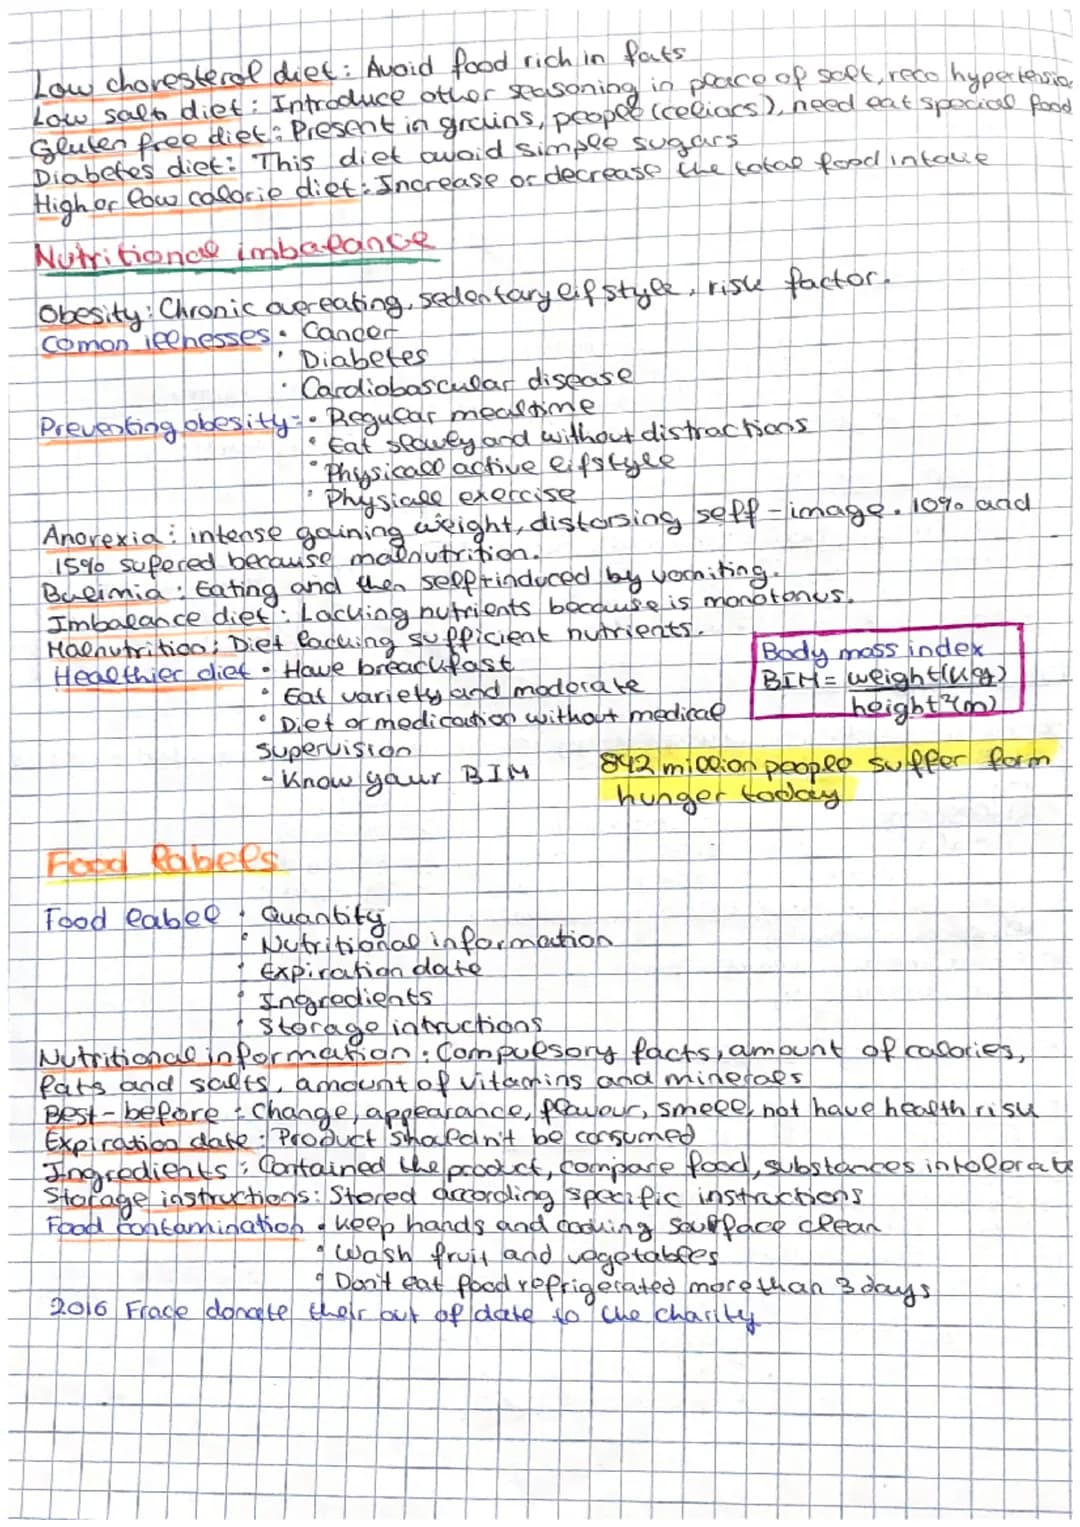 Low choresterol diet: Avoid food rich in fats
Low salt diet: Introduce other seasoning in place of salt, reco hypertensio
Gluten free diet: Present in grains, people (celiacs), need eat special food
Diabetes diet: This diet avoid simple sugars
High or low calorie diet: Increase or decrease the total food intake
Nutritional imbalance
Obesity: Chronic overeating, sedentary lifstyle, risk factor.
Comon illnesses • Cancer
• Diabetes
• Cardiobascular disease
Preventing obesity: • Regular mealtime
• Eat slowly and without distractions
• Physicall active lifstyle
• Physiall exercise
Anorexia: intense gaining weight, distorsing self-image. 10% and
15% sufered because malnutrition.
Bulimia: Eating and then self-induced by vomiting.
Imbalance diet: Lacking nutrients because is monotonus.
Malnutrition: Diet lacking sufficient nutrients.
Healthier diet • Have breackfast
• Eat variety and moderate
• Diet or medication without medical
supervision
- Know your BIM
Body mass index
BIM = weight(kg)
height²(m)
842 million people suffer form
hunger today
Food labels
Food label • Quantity
• Nutritional information
• Expiration date
• Ingredients
• Storage intructions
Nutritional information: Compulsory facts, amount of calories,
fats and salts, amount of vitamins and minerals
Best-before: Change, appearance, flavour, smell, not have health risk
Expiration date: Product shaldn't be consumed
Ingredients: Contained the product, compare food, substances intolerate
Storage instructions: Stored according specific instructions
Food contamination • keep hands and cooking surfface clean
• Wash fruit and vegetables
• Don't eat food refrigerated more than 3 days
2016 Frace donate their out of date to the charity